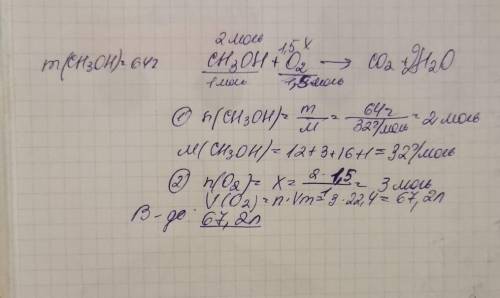 2 моль 1,5 x
m(CH3OH)=64г CH3OH + O2 → CO2 + 2H2O
1 моль 1,5 моль
① n(CH3OH)= m/M = 64г/32г/моль = 2 моль
M(CH3OH)=12+3+16+1=32г/моль
② n(O2)= x = 2·1,5/1 = 3 моль
V(O2)=n·Vm= 3·22,4= 67,2л
В-дь: 67,2л